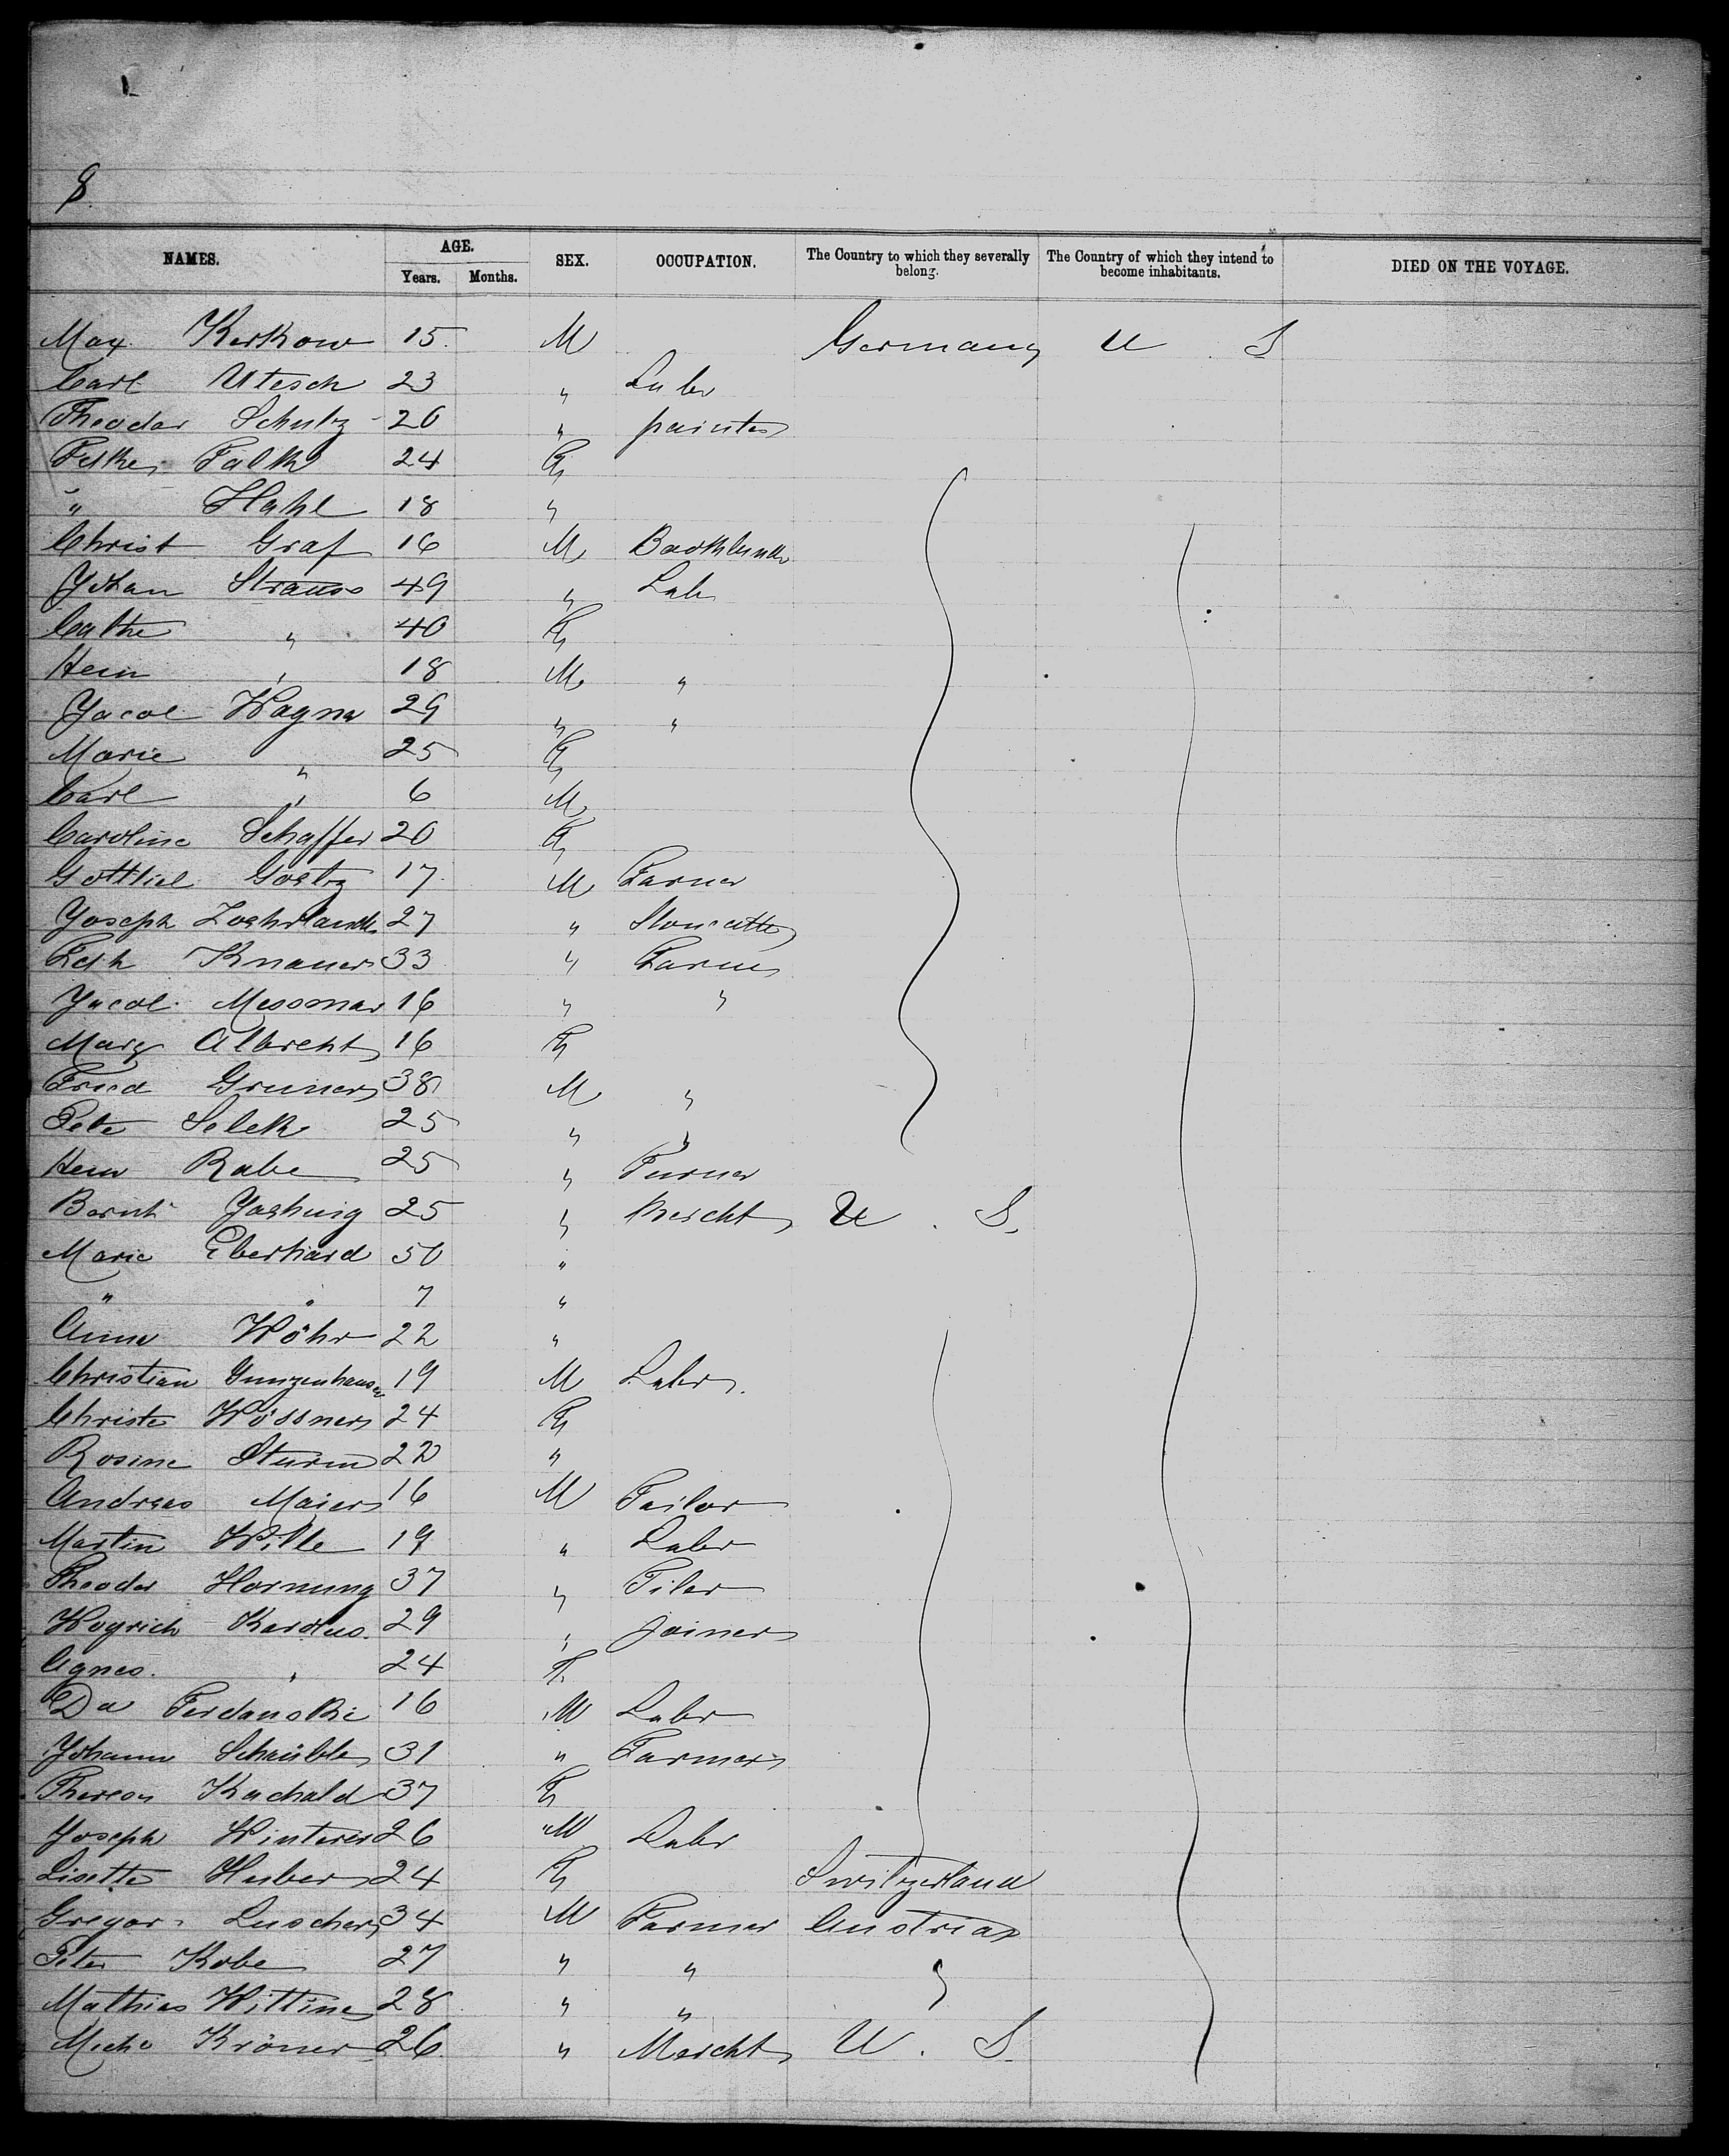 8
NAMES. AGE. SEX. OCCUPATION. The Country to which they severally belong. The Country of which they intend to become inhabitants. DIED ON THE VOYAGE.
Years. Months.
Max Kerkow 15 M Germany U S
Carl Utesch 23 " Labr
Theodor Schulz 20 " painter
Falk 24 F
" Hahl 18 "
Christ Graf 16 M
Johan Strauss 49 " Lab
Cathe " 40 F
Hein " 18 M "
Jacob Wagner 29 " "
Marie " 25 F
Carl " 6 M
Caroline Schaffer 20 F
Gottlieb 17 M Farmer
Joseph 27 " Stonecutter
Knauer 33 " Farmer
Jacob Messmar 16 " "
Marg Albrecht 16 F
Fried Gruner 38 M "
Pete Selek 25 " "
Hein Rabe 25 " Turner
Bernh 25 " Mercht U. S.
Marie Eberhard 50 "
" " 7 "
Anna Wöhr 22 "
Christian Gunzenhauser 19 M Labr.
Christe Wössner 24 F
Rosine Sturm 22 "
Andreas Maier 16 M Tailor
Martin Wille 19 " Labr
Theodor Hornung 37 " Tiler
Kardas 29 " joiner
Agnes. " 24 F.
Ferdanski 16 M Labr
Johann Schaüble 31 " Farmer
Theresa Kachald 37 F
Joseph Winterer 26 M Labr
Lisette Huber 24 F Switzerland
Gregor Luscher 34 M Farmer Austria
Peter Kobe 27 " " "
Mathias Wittine 28 " "
Krämer 26 " Mercht U. S.